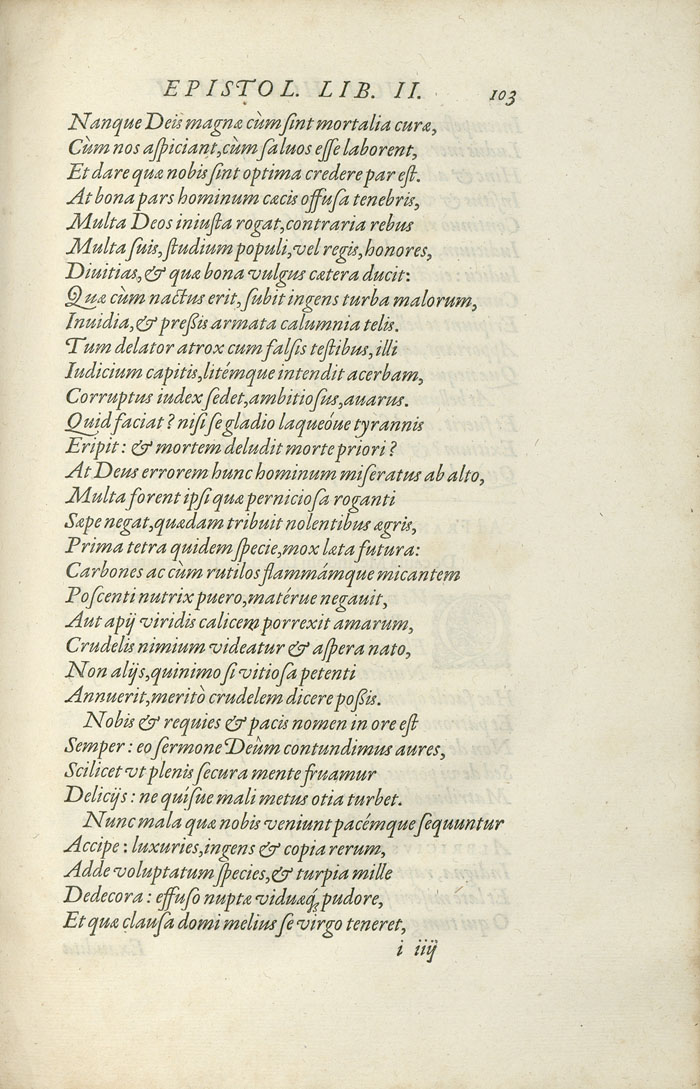 EPISTOL. LIB. II. 103
Nanque Deis magnæ cùm ſint mortalia curæ,
Cùm nos aſpiciant, cùm ſaluos eſſe laborent,
Et dare quæ nobis ſint optima credere par eſt.
At bona pars hominum cæcis offuſa tenebris,
Multa Deos iniuſta rogat, contraria rebus
Multa ſuis, ſtudium populi, vel regis, honores,
Diuitias, & quæ bona vulgus cætera ducit:
Quæ cùm nactus erit, ſubit ingens turba malorum,
Inuidia, & preßis armata calumnia telis.
Tum delator atrox cum falſis teſtibus, illi
Iudicium capitis, litémque intendit acerbam,
Corruptus iudex ſedet, ambitioſus, auarus.
Quid faciat? niſi ſe gladio laqueóue tyrannis
Eripit: & mortem deludit morte priori?
At Deus errorem hunc hominum miſeratus ab alto,
Multa forent ipſi quæ pernicioſa roganti
Sæpe negat, quædam tribuit nolentibus ægris,
Prima tetra quidem ſpecie, mox læta futura:
Carbones ac cùm rutilos flammámque micantem
Poſcenti nutrix puero, matérue negauit,
Aut apij viridis calicem porrexit amarum,
Crudelis nimium videatur & aſpera nato,
Non alijs, quinimo ſi vitioſa petenti
Annuerit, meritò crudelem dicere poßis.
Nobis & requies & pacis nomen in ore eſt
Semper: eo ſermone Deûm contundimus aures,
Scilicet vt plenis ſecura mente fruamur
Delicijs: ne quiſue mali metus otia turbet.
Nunc mala quæ nobis veniunt pacémque ſequuntur
Accipe: luxuries, ingens & copia rerum,
Adde voluptatum ſpecies, & turpia mille
Dedecora: effuſo nuptæ viduæq́; pudore,
Et quæ clauſa domi melius ſe virgo teneret,
i iiij